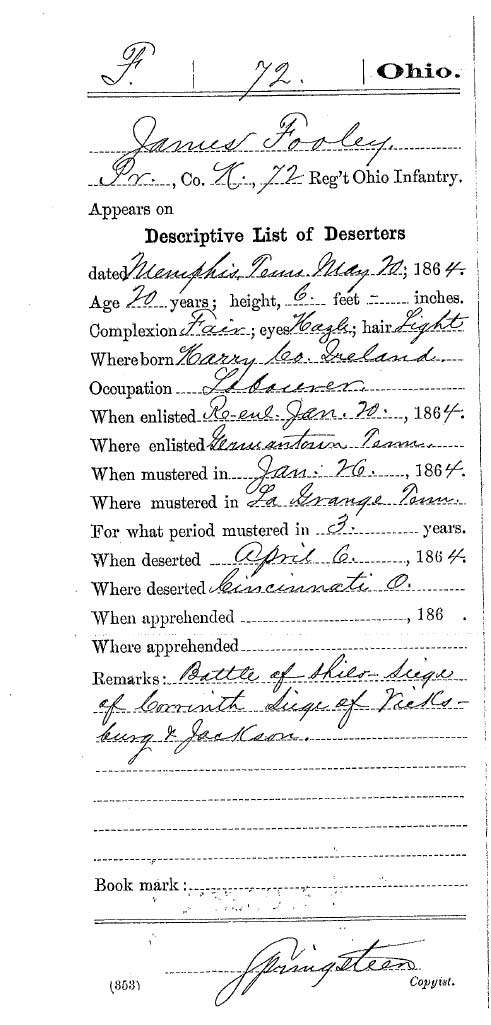 F. | 72. | Ohio.
James Fooley.
Pr., Co. K., 72 Reg't Ohio Infantry.
Appears on
Descriptive List of Deserters
dated Memphis, Tenn. May 20, 1864.
Age 20 years; height, 6 feet - inches.
Complexion Fair; eyes Hazle; hair Light
Where born Karry Co. Ireland.
Occupation Labourer
When enlisted Re-enl. Jan. 20., 1864.
Where enlisted Germantown Tenn.
When mustered in Jan. 26., 1864.
Where mustered in La Grange Tenn.
For what period mustered in 3. years.
When deserted April 6., 1864.
Where deserted Cincinnati O.
When apprehended , 186 .
Where apprehended
Remarks: Battle of Shilo- Siege
of Corrinth Siege of Vicks-
burg & Jackson.
Book mark:
Springsteen
(353) Copyist.